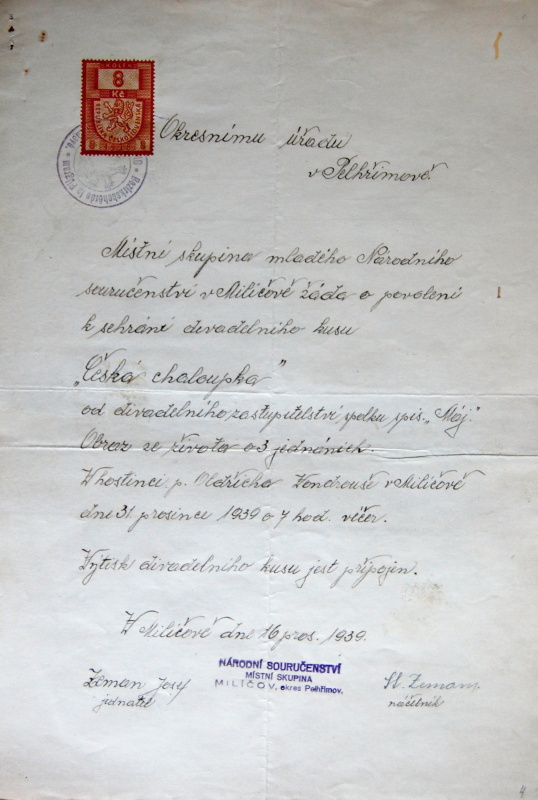 KOLEK
8
Kč
REPUBLIKA ČESKOSLOVENSKÁ
8 8
Bezirksbehörde in
Okresnímu úřadu
v Pelhřimově.
Místní skupina mladého Národního
souručenství v Miličově žádá o povolení
k sehrání divadelního kusu
„Česká chaloupka"
od divadelního zastupitelství spolku spis. „Máj."
Obraz ze života o 3 jednáních.
V hostinci p. Oldřicha Vondrouše v Miličově
dne 31 prosince 1939 o 7 hod. večer.
Výtisk divadelního kusu jest připojen.
V Miličově dne 16 pros. 1939.
NÁRODNÍ SOURUČENSTVÍ
MÍSTNÍ SKUPINA
MILÍČOV, okres Pelhřimov.
Zeman Josef
jednatel
St. Zeman
náčelník
4